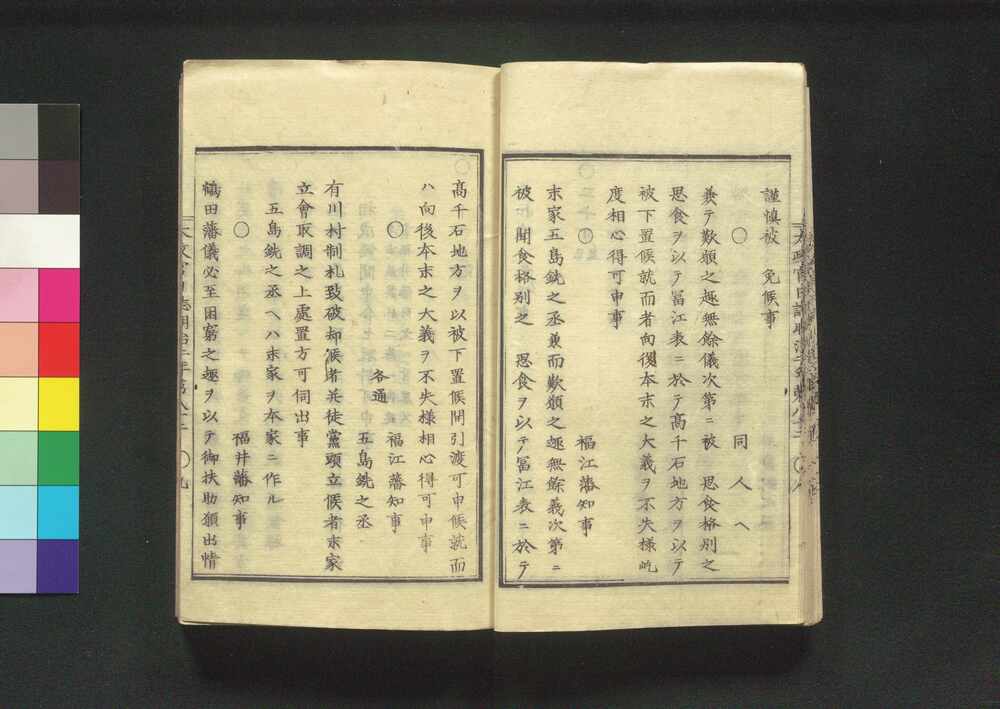 謹慎被　免候事
○　同人ヘ
兼テ歎願之趣無餘儀次第ニ被　思食格別之
思食ヲ以テ冨江表ニ於テ高千石地方ヲ以テ
被下置候就而者向後本末之大義ヲ不失様屹
度相心得可申事
○　福江藩知事
末家五島銑之丞兼而歎願之趣無餘義次第ニ
被　聞食格別之　思食ヲ以テ冨江表ニ於テ
高千石地方ヲ以被下置候間引渡可申候就而
ハ向後本末之大義ヲ不失様相心得可申事
○　福江藩知事
各通
五島銑之丞
有川村制札致破却候者并徒黨頭立候者末家
立會取調之上處置方可伺出事
五島銑之丞ヘハ末家ヲ本家ニ作ル
○　福井藩知事
鶴田藩儀必至困窮之趣ヲ以テ御扶助願出情